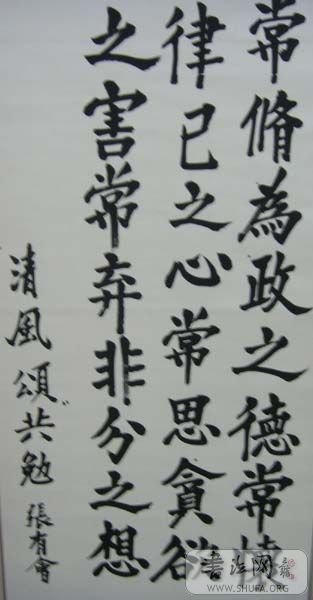 常脩為政之德常懷
律己之心常思貪欲
之害常弃非分之想
清風頌共勉 張有會
書法网
WWW.SHUFA.ORG